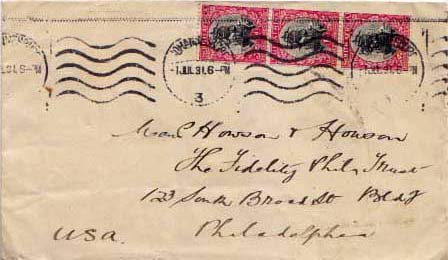 1 JUL 31. 6 - PM
3
Howson & Howson
The Fidelity Phila Trust
123 South Broad St Bldg
Philadelphia
U.S.A.